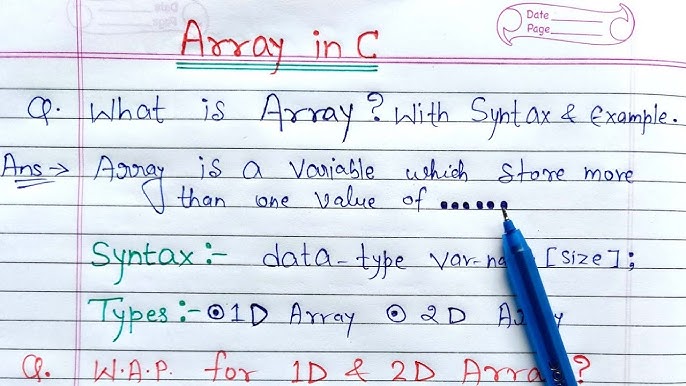 Date
Page
Array in C
Q. What is Array? With Syntax & Example.
Ans → Array is a variable which store more
than one value of ......
Syntax:- data-type var-na [size];
Types:- ⊙ 1D Array ⊙ 2D Array
Q. W.A.P. for 1D & 2D Array?